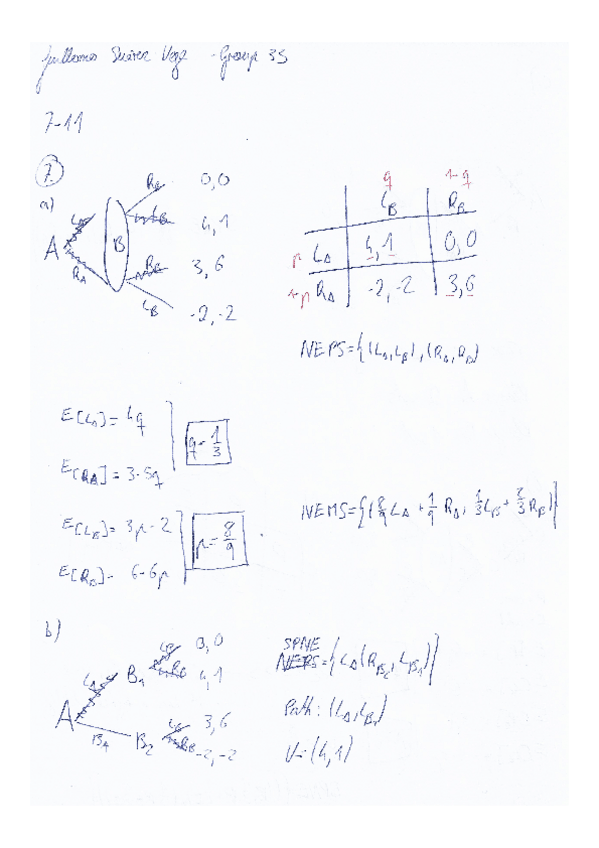 Guillermo Suárez Vega - Group 35
7-11
7
a)
A
L_A
R_A
B
R_B 0,0
L_B 4,1
R_B 3,6
L_B -2,-2
q 1-q
L_B R_B
p L_A 4,1 0,0
1-p R_A -2,-2 3,6
NEPS={(L_A,L_B),(R_A,R_B)
E[L_A]=4q
E[R_A]=3-5q
q=1/3
E[L_B]=3p-2
E[R_B]= 6-6p
p=8/9
NEMS={(8/9 L_A + 1/9 R_A, 1/3 L_B + 2/3 R_B)}
b)
A
L_A B_1
0,0
4,1
B_2
3,6
-2,-2
SPNE
NEPS={L_A(R_B2, L_B1)}
Path: (L_A, L_B1)
U=(4,1)